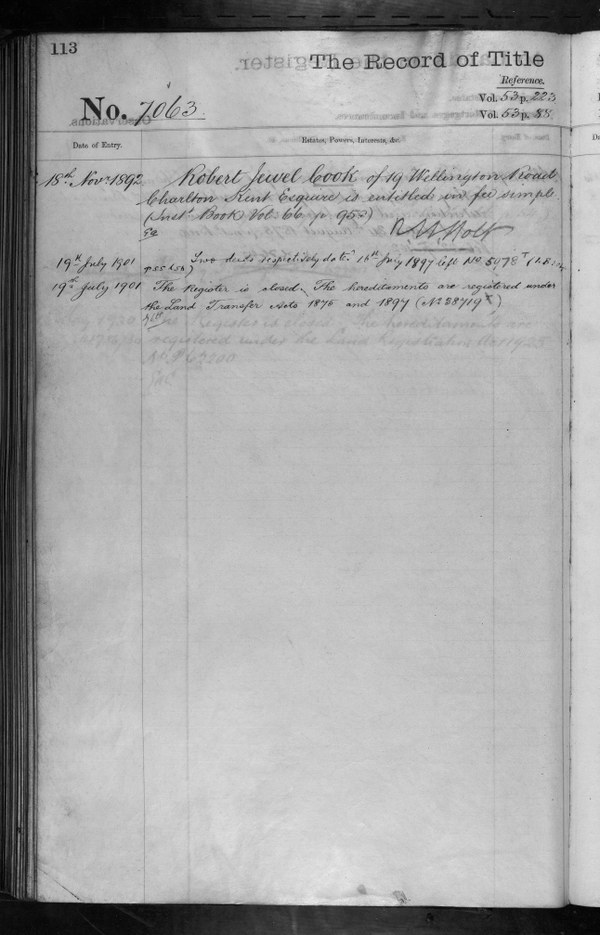 113
The Record of Title
Reference.
No. 7063.
Vol. 53 p. 223
Vol. 53 p. 88.
Date of Entry.
Estates, Powers, Interests, &c.
18th Novr 1892
Robert Jewel Cook of 19 Wellington Road
Charlton Kent Esquire is entitled in fee simple
(Inst. Book Vol. 66 p 952)
R. Holt
19th July 1901
Two deeds respectively dated 16th July 1897 left No 5978
19th July 1901
The Register is closed. The hereditaments are registered under
the Land Transfer Acts 1875 and 1897 (No 38719)
Register is closed. The hereditaments are
registered under the Land Registration Act 1925